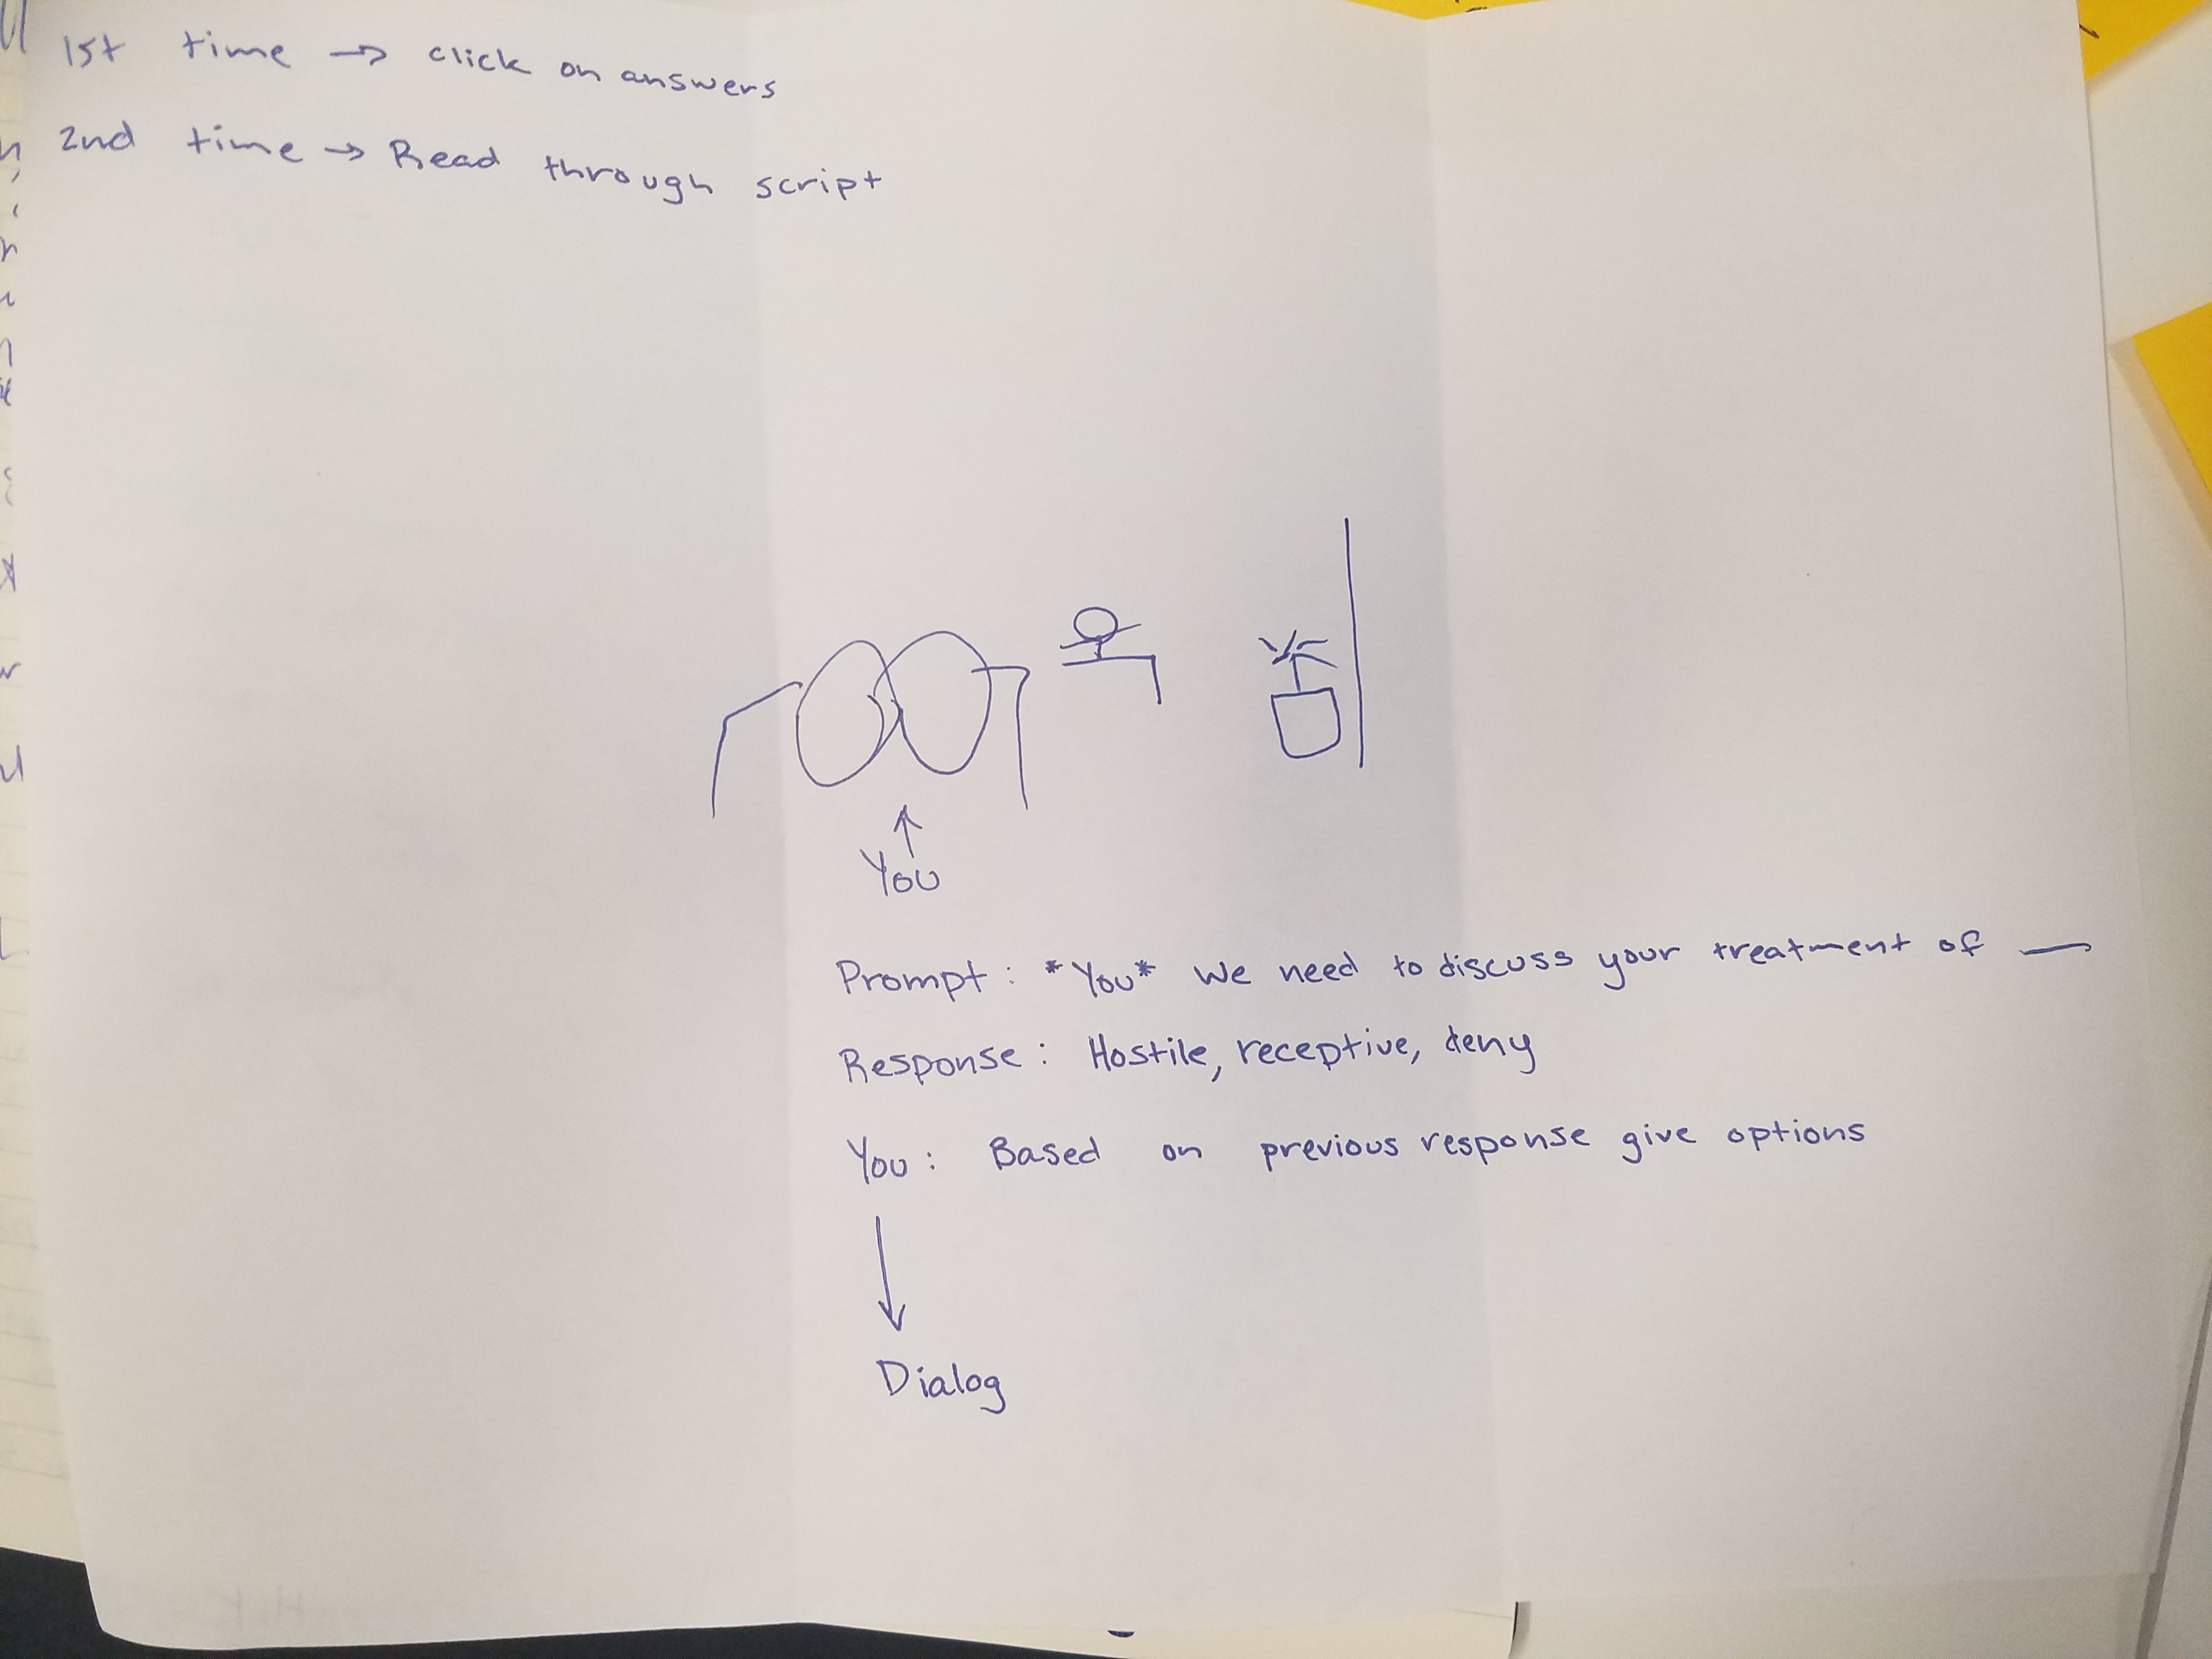 1st time → click on answers
2nd time → Read through script
You
Prompt : *You* We need to discuss your treatment of —
Response : Hostile, receptive, deny
You : Based on previous response give options
Dialog